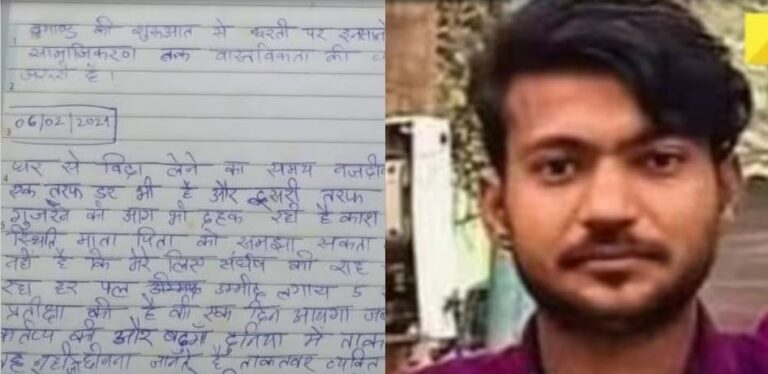 ब्रह्माण्ड की शुरूआत से धरती पर इन्साने
सामाजिकरण तक वास्तविकता की
जरूरी है।
06/02/2021
घर से विदा लेने का समय नजदीक
एक तरफ डर भी है और दूसरी तरफ
गुजरने की आग भी दहक रही है काश
स्थिति माता पिता को समझा सकता
नहीं है कि मेरे लिए संघर्ष की राह
रहा हर पल उम्मीद लगाये 5
प्रतीक्षा की है की एक दिन आयगा जब
कर्तव्य की और बढूगाँ दुनिया में ताक
जानते है ताकतवर व्यक्ति